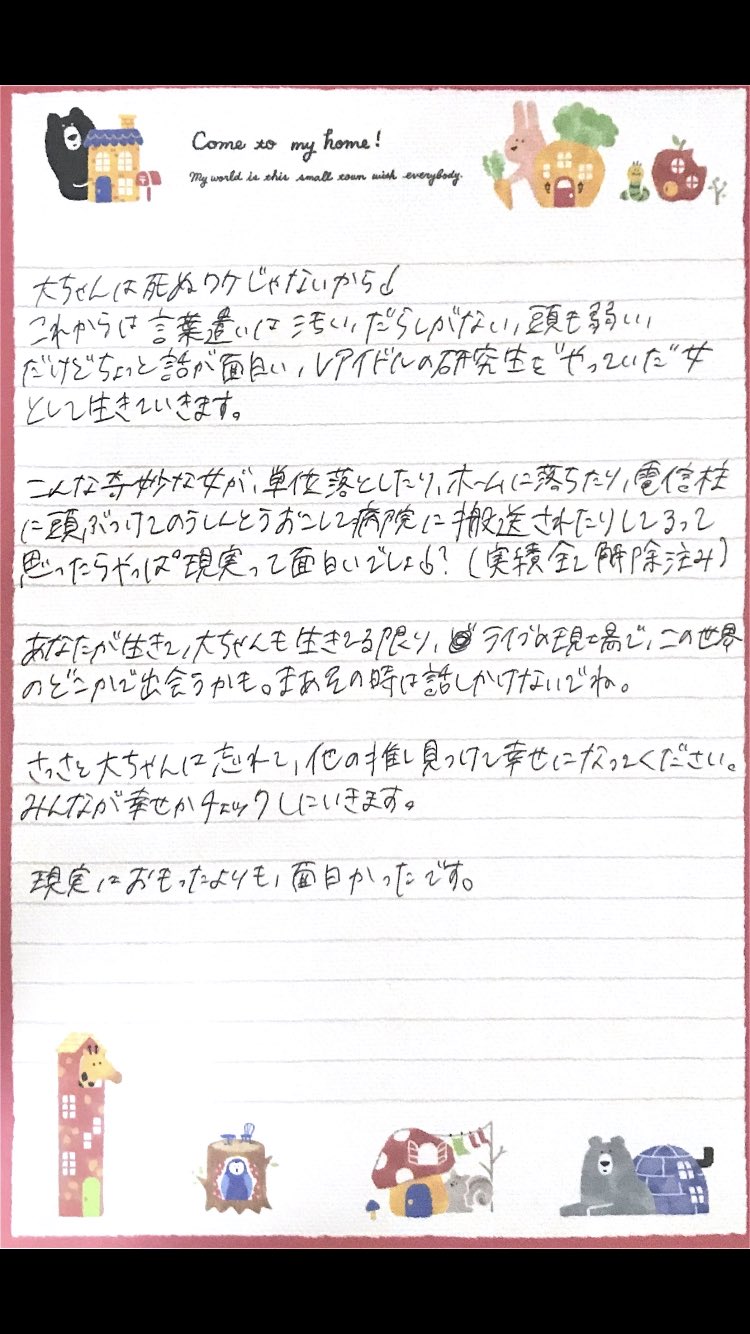 Come to my home!
My world is this small town wish everybody.
大ちゃんは死ぬワケじゃないからさ
これからは言葉遣いは汚い、だらしがない、頭も弱い、
だけどちょっと話が面白い、レアイドルの研究生を"やっていた"女
として生きていきます。
こんな奇妙な女が、単位落としたり、ホームに落ちたり、電信柱
に頭ぶつけてのうしんとうおこして病院に搬送されたりしてるって
思ったらやっぱ現実って面白いでしょう?(実積全て解除済み)
あなたが生きて、大ちゃんも生きてる限り、ライブの現場で、この世界
のどこかで出会うかも。まあその時は話しかけないでね。
さっさと大ちゃんは忘れて、他の推し見つけて幸せになってください。
みんなが幸せかチェックしにいきます。
現実はおもったよりも、面白かったです。